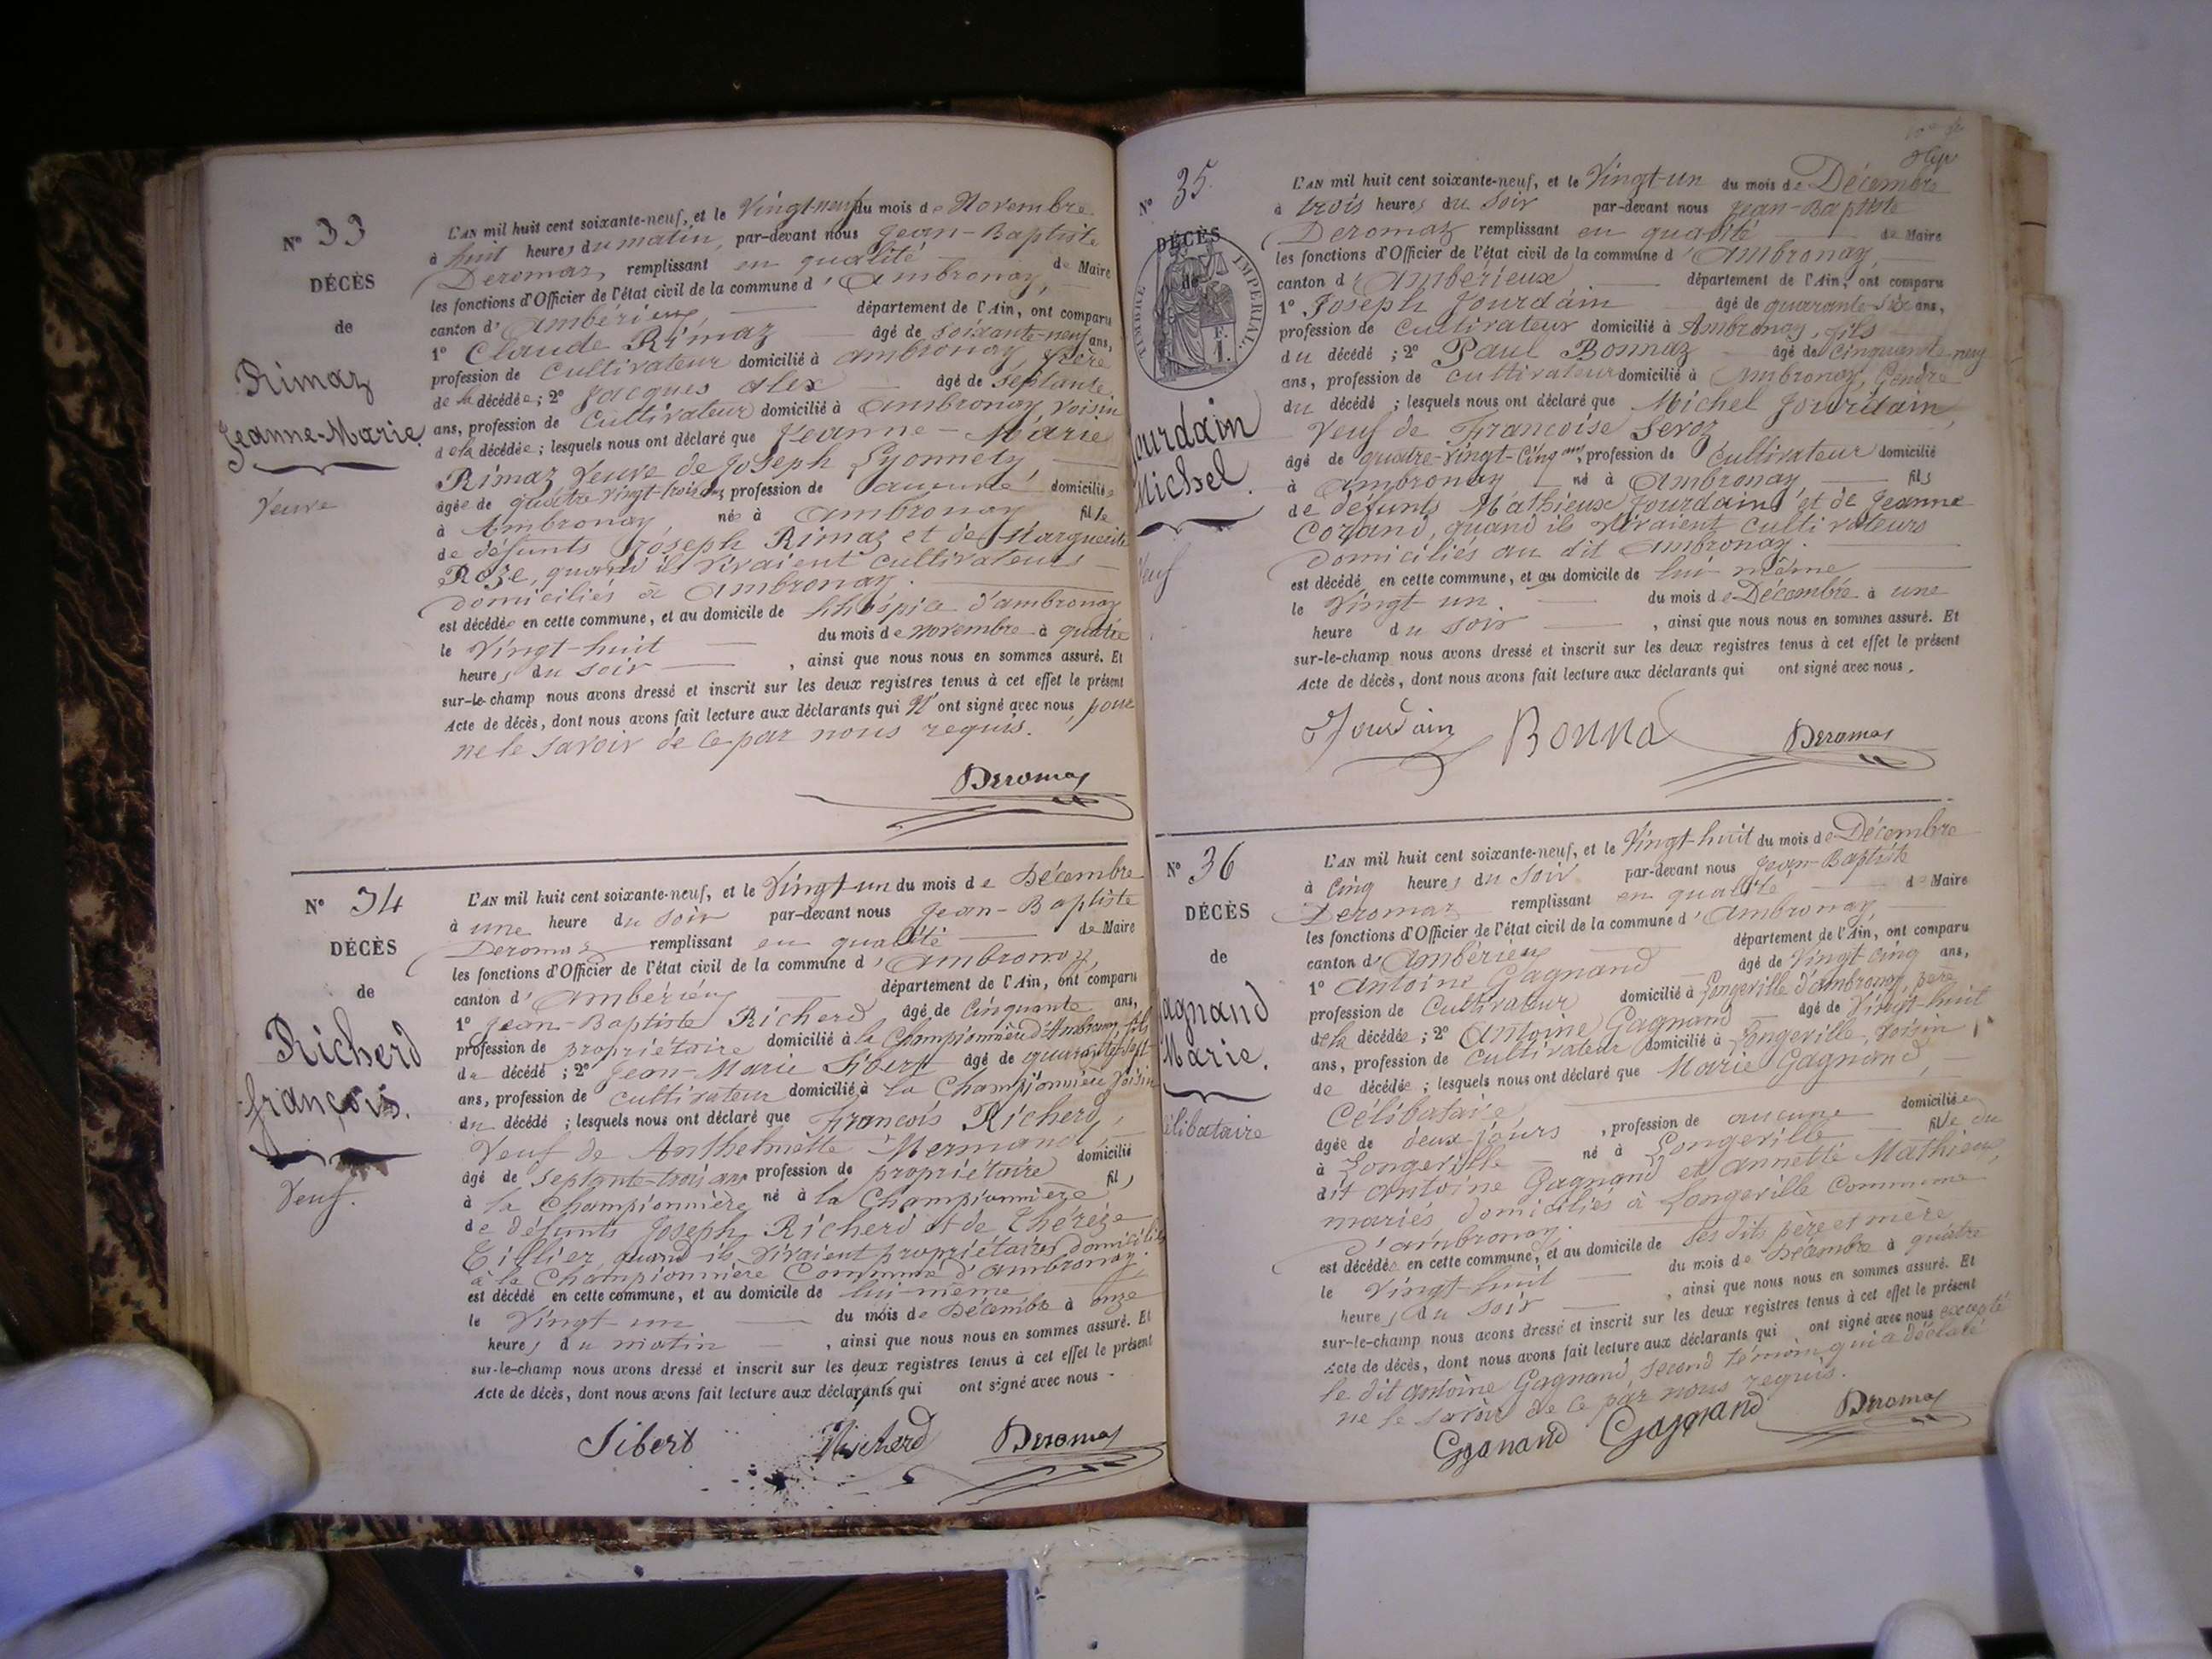 N° 33
DÉCÈS
de
Rimaz
Jeanne-Marie
Veuve
L'AN mil huit cent soixante-neuf, et le Vingt-neuf du mois de Novembre
à huit heures du matin, par-devant nous Jean-Baptiste
Deromaz remplissant en qualité de Maire
les fonctions d'Officier de l'état civil de la commune d'Ambronay,
canton d'Ambérieux, département de l'Ain, ont comparu
1° Claude Rimaz âgé de soixante-neuf ans,
profession de Cultivateur domicilié à Ambronay, frère
de la décédée ; 2° Jacques Alex âgé de septante
ans, profession de Cultivateur domicilié à Ambronay, voisin
de la décédée ; lesquels nous ont déclaré que Jeanne-Marie
Rimaz Veuve de Joseph Lyonnety,
âgée de quatre vingt-trois ans, profession de aucune domiciliée
à Ambronay, née à Ambronay fille
de défunts Joseph Rimaz et de Marguerite
Roze, quand ils vivaient cultivateurs
domiciliés à Ambronay.
est décédée en cette commune, et au domicile de l'hospice d'ambronay
le Vingt-huit du mois de novembre à quatre
heures du soir, ainsi que nous nous en sommes assuré. Et
sur-le-champ nous avons dressé et inscrit sur les deux registres tenus à cet effet le présent
Acte de décès, dont nous avons fait lecture aux déclarants qui N'ont signé avec nous, pour
ne le savoir de ce par nous requis.
Deromaz
N° 34
DÉCÈS
de
Richerd
françois.
Veuf.
L'AN mil huit cent soixante-neuf, et le Vingt-un du mois de Décembre
à une heure du soir par-devant nous Jean-Baptiste
Deromaz remplissant en qualité de Maire
les fonctions d'Officier de l'état civil de la commune d'Ambronay,
canton d'Ambérieux département de l'Ain, ont comparu
1° Jean-Baptiste Richerd âgé de Cinquante ans,
profession de propriétaire domicilié à la Championnière d'Ambronay, fils
du décédé ; 2° Jean-Marie Sibert âgé de quarante-sept
ans, profession de cultivateur domicilié à la Championnière voisin
du décédé ; lesquels nous ont déclaré que François Richerd,
Veuf de Anthelmette Mermand,
âgé de septante-trois ans profession de propriétaire domicilié
à la Championnière né à la Championnière fils
de défunts Joseph Richerd et de Thérèze
Tillier, quand ils vivaient propriétaires domiciliés
à la Championnière Commune d'Ambronay.
est décédé en cette commune, et au domicile de lui-même
le Vingt-un du mois de Décembre à onze
heures du matin, ainsi que nous nous en sommes assuré. Et
sur-le-champ nous avons dressé et inscrit sur les deux registres tenus à cet effet le présent
Acte de décès, dont nous avons fait lecture aux déclarants qui ont signé avec nous.
Sibert Richerd Deromaz
N° 35.
DÉCÈS
de
TIMBRE IMPÉRIAL
F.
1.
Jourdain
Michel.
Veuf
L'AN mil huit cent soixante-neuf, et le Vingt-un du mois de Décembre
à trois heures du soir par-devant nous Jean-Baptiste
Deromaz remplissant en qualité de Maire
les fonctions d'Officier de l'état civil de la commune d'Ambronay,
canton d'Ambérieux département de l'Ain, ont comparu
1° Joseph Jourdain âgé de quarante-six ans,
profession de Cultivateur domicilié à Ambronay, fils
du décédé ; 2° Paul Bonnaz âgé de Cinquante neuf
ans, profession de cultivateur domicilié à Ambronay, Gendre
du décédé ; lesquels nous ont déclaré que Michel Jourdain,
Veuf de Françoise Servoz
âgé de quatre-vingt-cinq ans, profession de Cultivateur domicilié
à Ambronay né à Ambronay, fils
de défunts Mathieux Jourdain et de Jeanne
Cozand, quand ils vivaient cultivateurs
domiciliés au dit Ambronay.
est décédé en cette commune, et au domicile de lui même
le Vingt un. du mois de Décembre à une
heure du soir, ainsi que nous nous en sommes assuré. Et
sur-le-champ nous avons dressé et inscrit sur les deux registres tenus à cet effet le présent
Acte de décès, dont nous avons fait lecture aux déclarants qui ont signé avec nous.
Jourdain Bonnaz Deromaz
N° 36
DÉCÈS
de
agnand
Marie.
élibataire
L'AN mil huit cent soixante-neuf, et le Vingt-huit du mois de Décembre
à Cinq heures du soir par-devant nous Jean-Baptiste
Deromaz remplissant en qualité de Maire
les fonctions d'Officier de l'état civil de la commune d'Ambronay,
canton d'Ambérieux département de l'Ain, ont comparu
1° Antoine Gagnand âgé de Vingt cinq ans,
profession de Cultivateur domicilié à Longeville d'ambronay, père
de la décédée ; 2° Antoine Gagnand âgé de Vingt-huit
ans, profession de Cultivateur domicilié à Longeville, voisin
de décédée ; lesquels nous ont déclaré que Marie Gagnand,
Célibataire
âgée de deux jours, profession de aucune domiciliée
à Longeville né à Longeville fille du
dit Antoine Gagnand et Annette Mathieu,
mariés, domiciliés à Longeville Commune
d'ambronay.
est décédée en cette commune, et au domicile de ses dits père et mère
le Vingt-huit du mois de Décembre à quatre
heures du soir, ainsi que nous nous en sommes assuré. Et
sur-le-champ nous avons dressé et inscrit sur les deux registres tenus à cet effet le présent
Acte de décès, dont nous avons fait lecture aux déclarants qui ont signé avec nous excepté
le dit Antoine Gagnand, second témoin qui a déclaré
ne le savoir de ce par nous requis.
Gganand Gagnand Deromaz